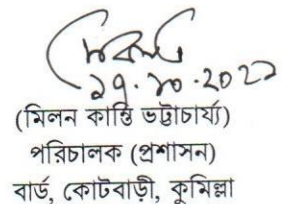 ২৭.১০.২০২১
(মিলন কান্তি ভট্টাচার্য্য)
পরিচালক (প্রশাসন)
বার্ড, কোটবাড়ী, কুমিল্লা